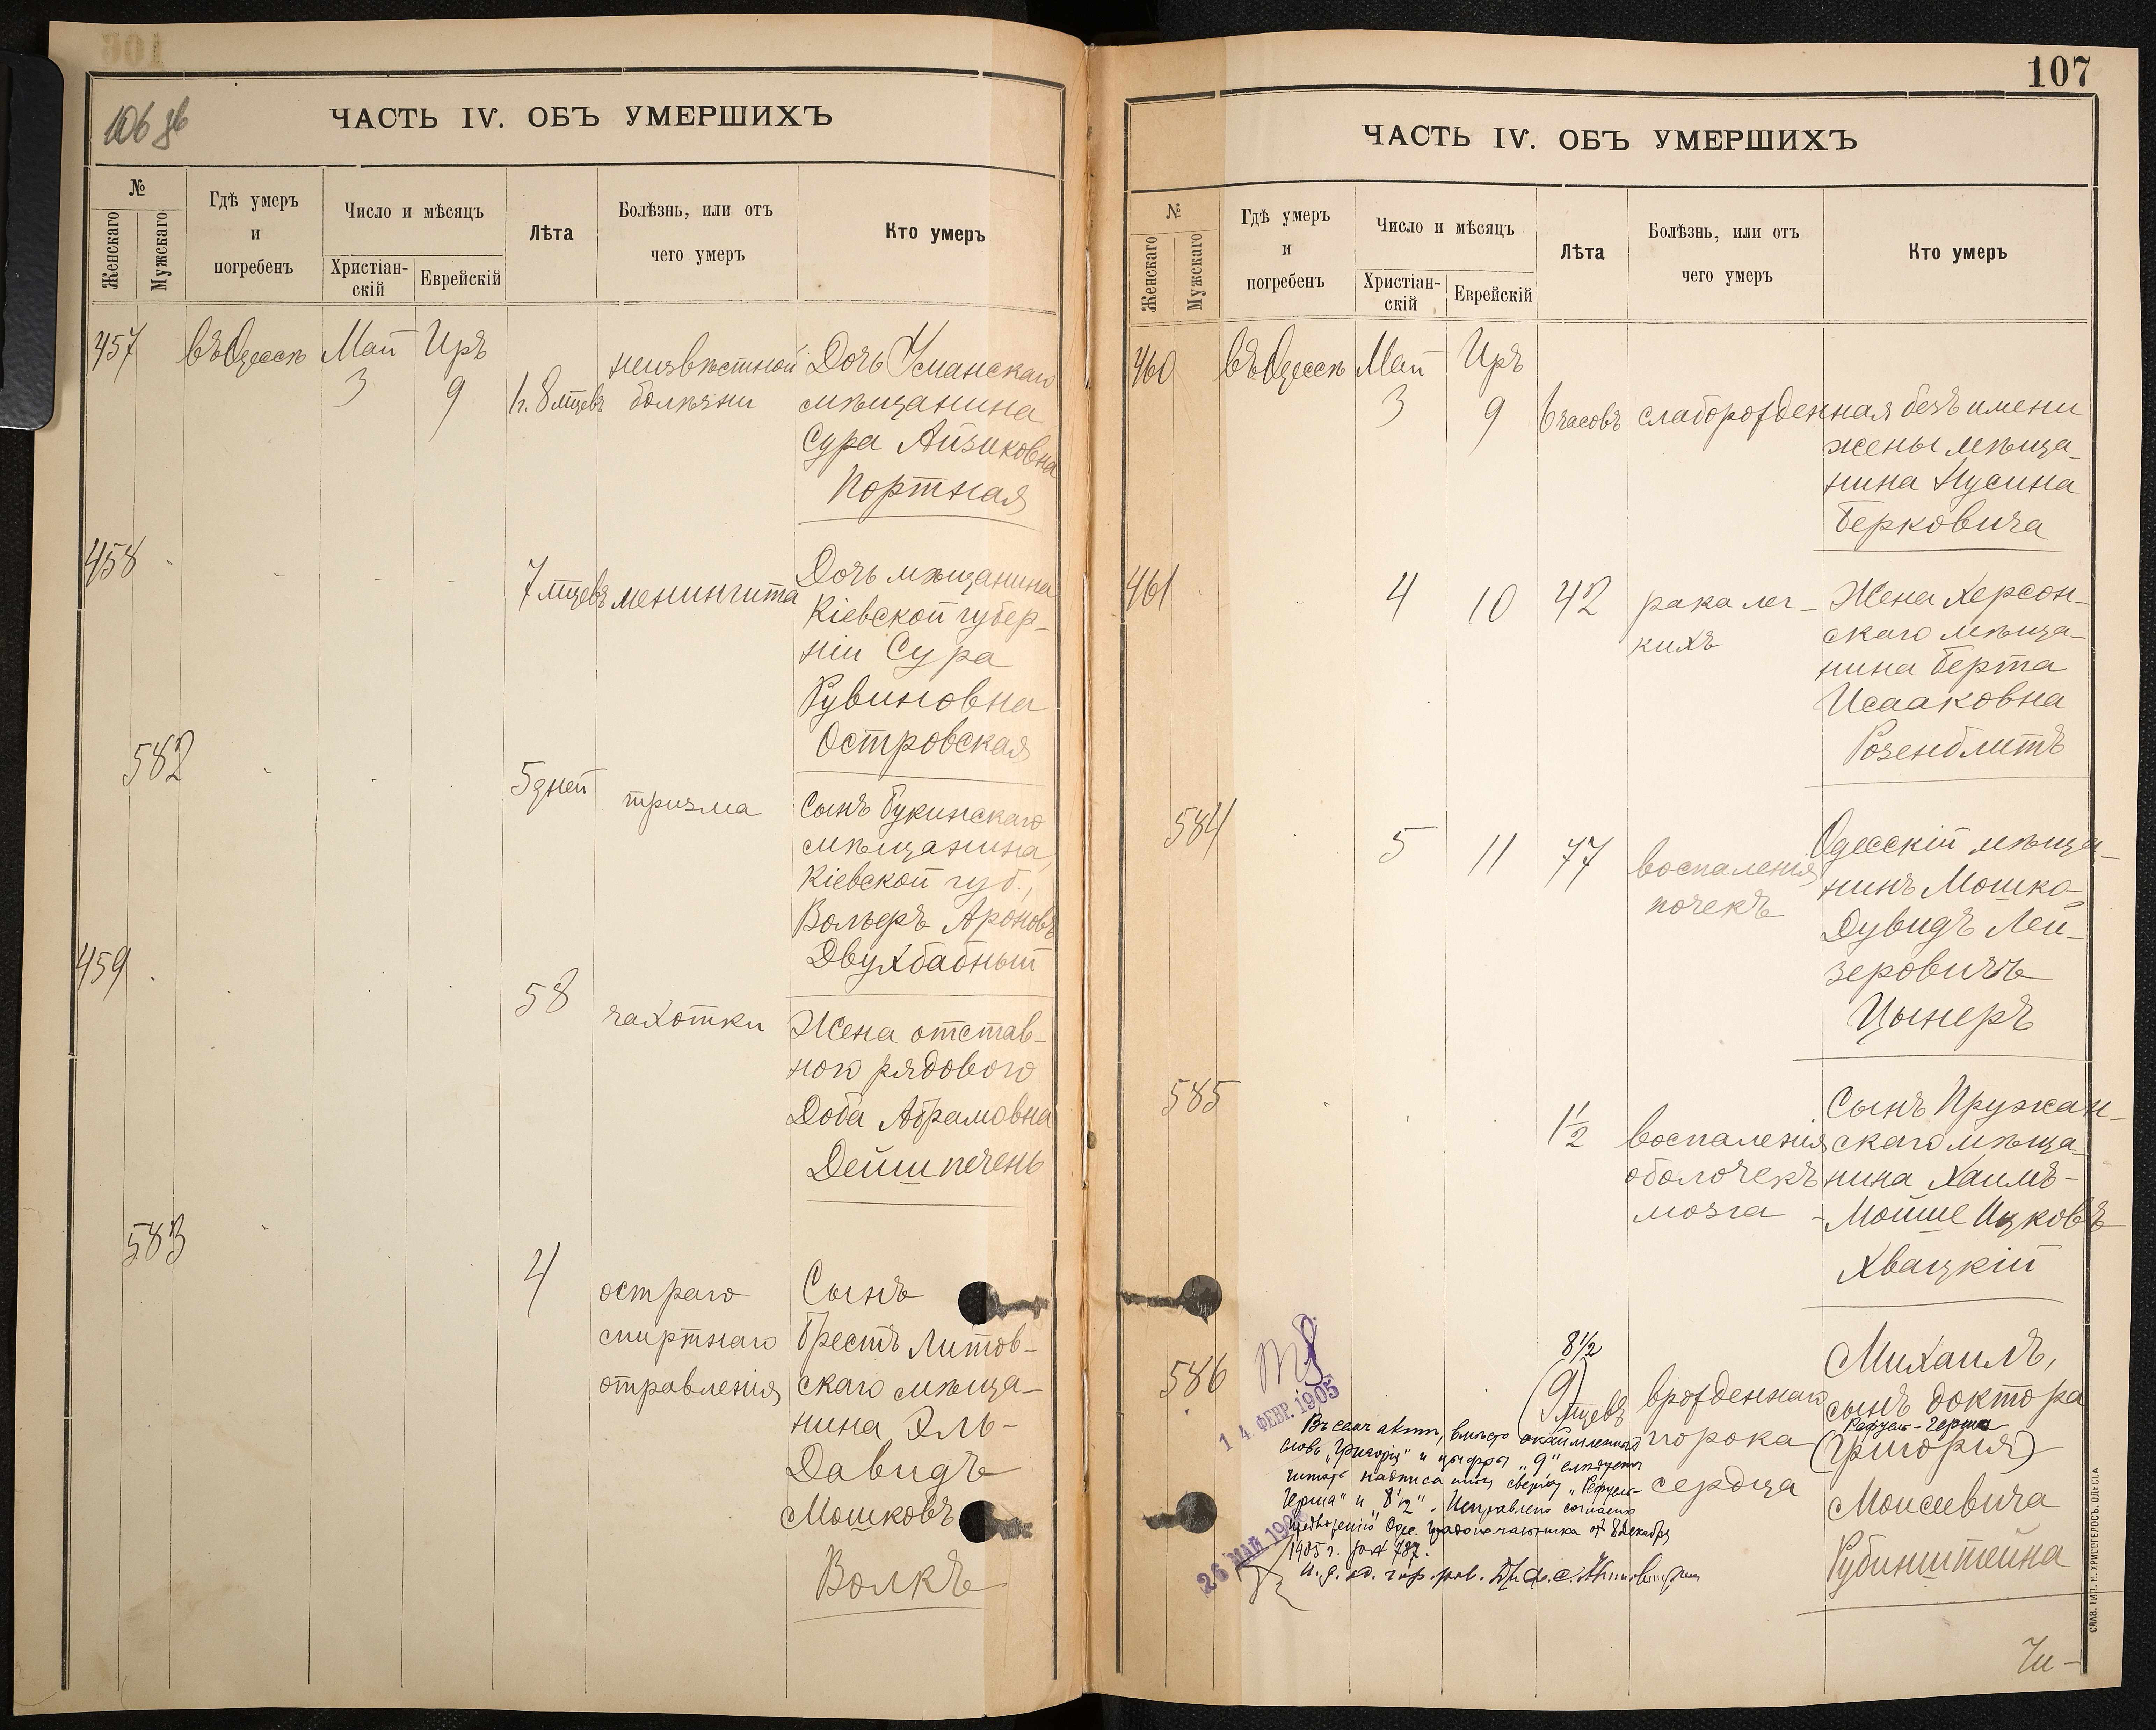 106 зв
ЧАСТЬ IV. ОБЪ УМЕРШИХЪ
№
Женскаго
Мужскаго
Гдѣ умеръ
и
погребенъ
Число и мѣсяцъ
Христіан-
скій
Еврейскій
Лѣта
Болѣзнь, или отъ
чего умеръ
Кто умеръ
457
въ Одессѣ
Май
3
Иръ
9
1 г. 8 мцевъ
неизвѣстной
болѣзни
Дочь Уманскаго
мѣщанина
Сура Айзиковна
Портная
458
7 мцевъ
менингита
Дочь мѣщанина
Кіевской губер-
ніи Сура
Рувиновна
Островская
582
5 дней
тризма
Сынъ Букинскаго
мѣщанина,
Кіевской губ.,
Вольфъ Ароновъ
Двухбабный
459
58
чахотки
Жена отстав-
ного рядового
Доба Абрамовна
Дейшпечень
583
4
остраго
спиртнаго
отравленія
Сынъ
Брестъ Литов-
скаго мѣща-
нина Эль-
Давидъ
Мошковъ
Волкъ
107
ЧАСТЬ IV. ОБЪ УМЕРШИХЪ
№
Женскаго
Мужскаго
Гдѣ умеръ
и
погребенъ
Число и мѣсяцъ
Христіан-
скій
Еврейскій
Лѣта
Болѣзнь, или отъ
чего умеръ
Кто умеръ
460
въ Одессѣ
Май
3
Иръ
9
6 часовъ
слаборожденная безъ имени
жены мѣща-
нина Нусина
Берковича
461
4
10
42
рака лег-
кихъ
Жена Херсон-
скаго мѣща-
нина Берта
Исааковна
Розенблитъ
584
5
11
77
воспаленія
почекъ
Одесскій мѣща-
нинъ Мошко-
Дувидъ Лей-
зеровичъ
Цынеръ
585
1 1/2
воспаленія
оболочекъ
мозга
Сынъ Пружан-
скаго мѣща-
нина Хаимъ-
-Мойше Ицковъ
Хвацкій
586
8 1/2
(9)
мцевъ
врожденнаго
порока
сердца
Михаилъ,
сынъ доктора
Рефуель-Герша
(Григорія)
Моисеевича
Рубинштейна
14 ФЕВР. 1905
Въ семъ актѣ, вмѣсто окаймленныхъ
словъ „Григорія" и цыфры „9" слѣдуетъ
читать надписанныя сверху „Рефуель-
Герша" и „8 1/2". Исправлено согласно
предложенію Одес. Градоначальника отъ 8 декабря
1905 г. за № 787.
26 МАЙ 190
САЛВ. ТИП. Н. ХРИСОГЕЛОСЪ. ОДЕССА